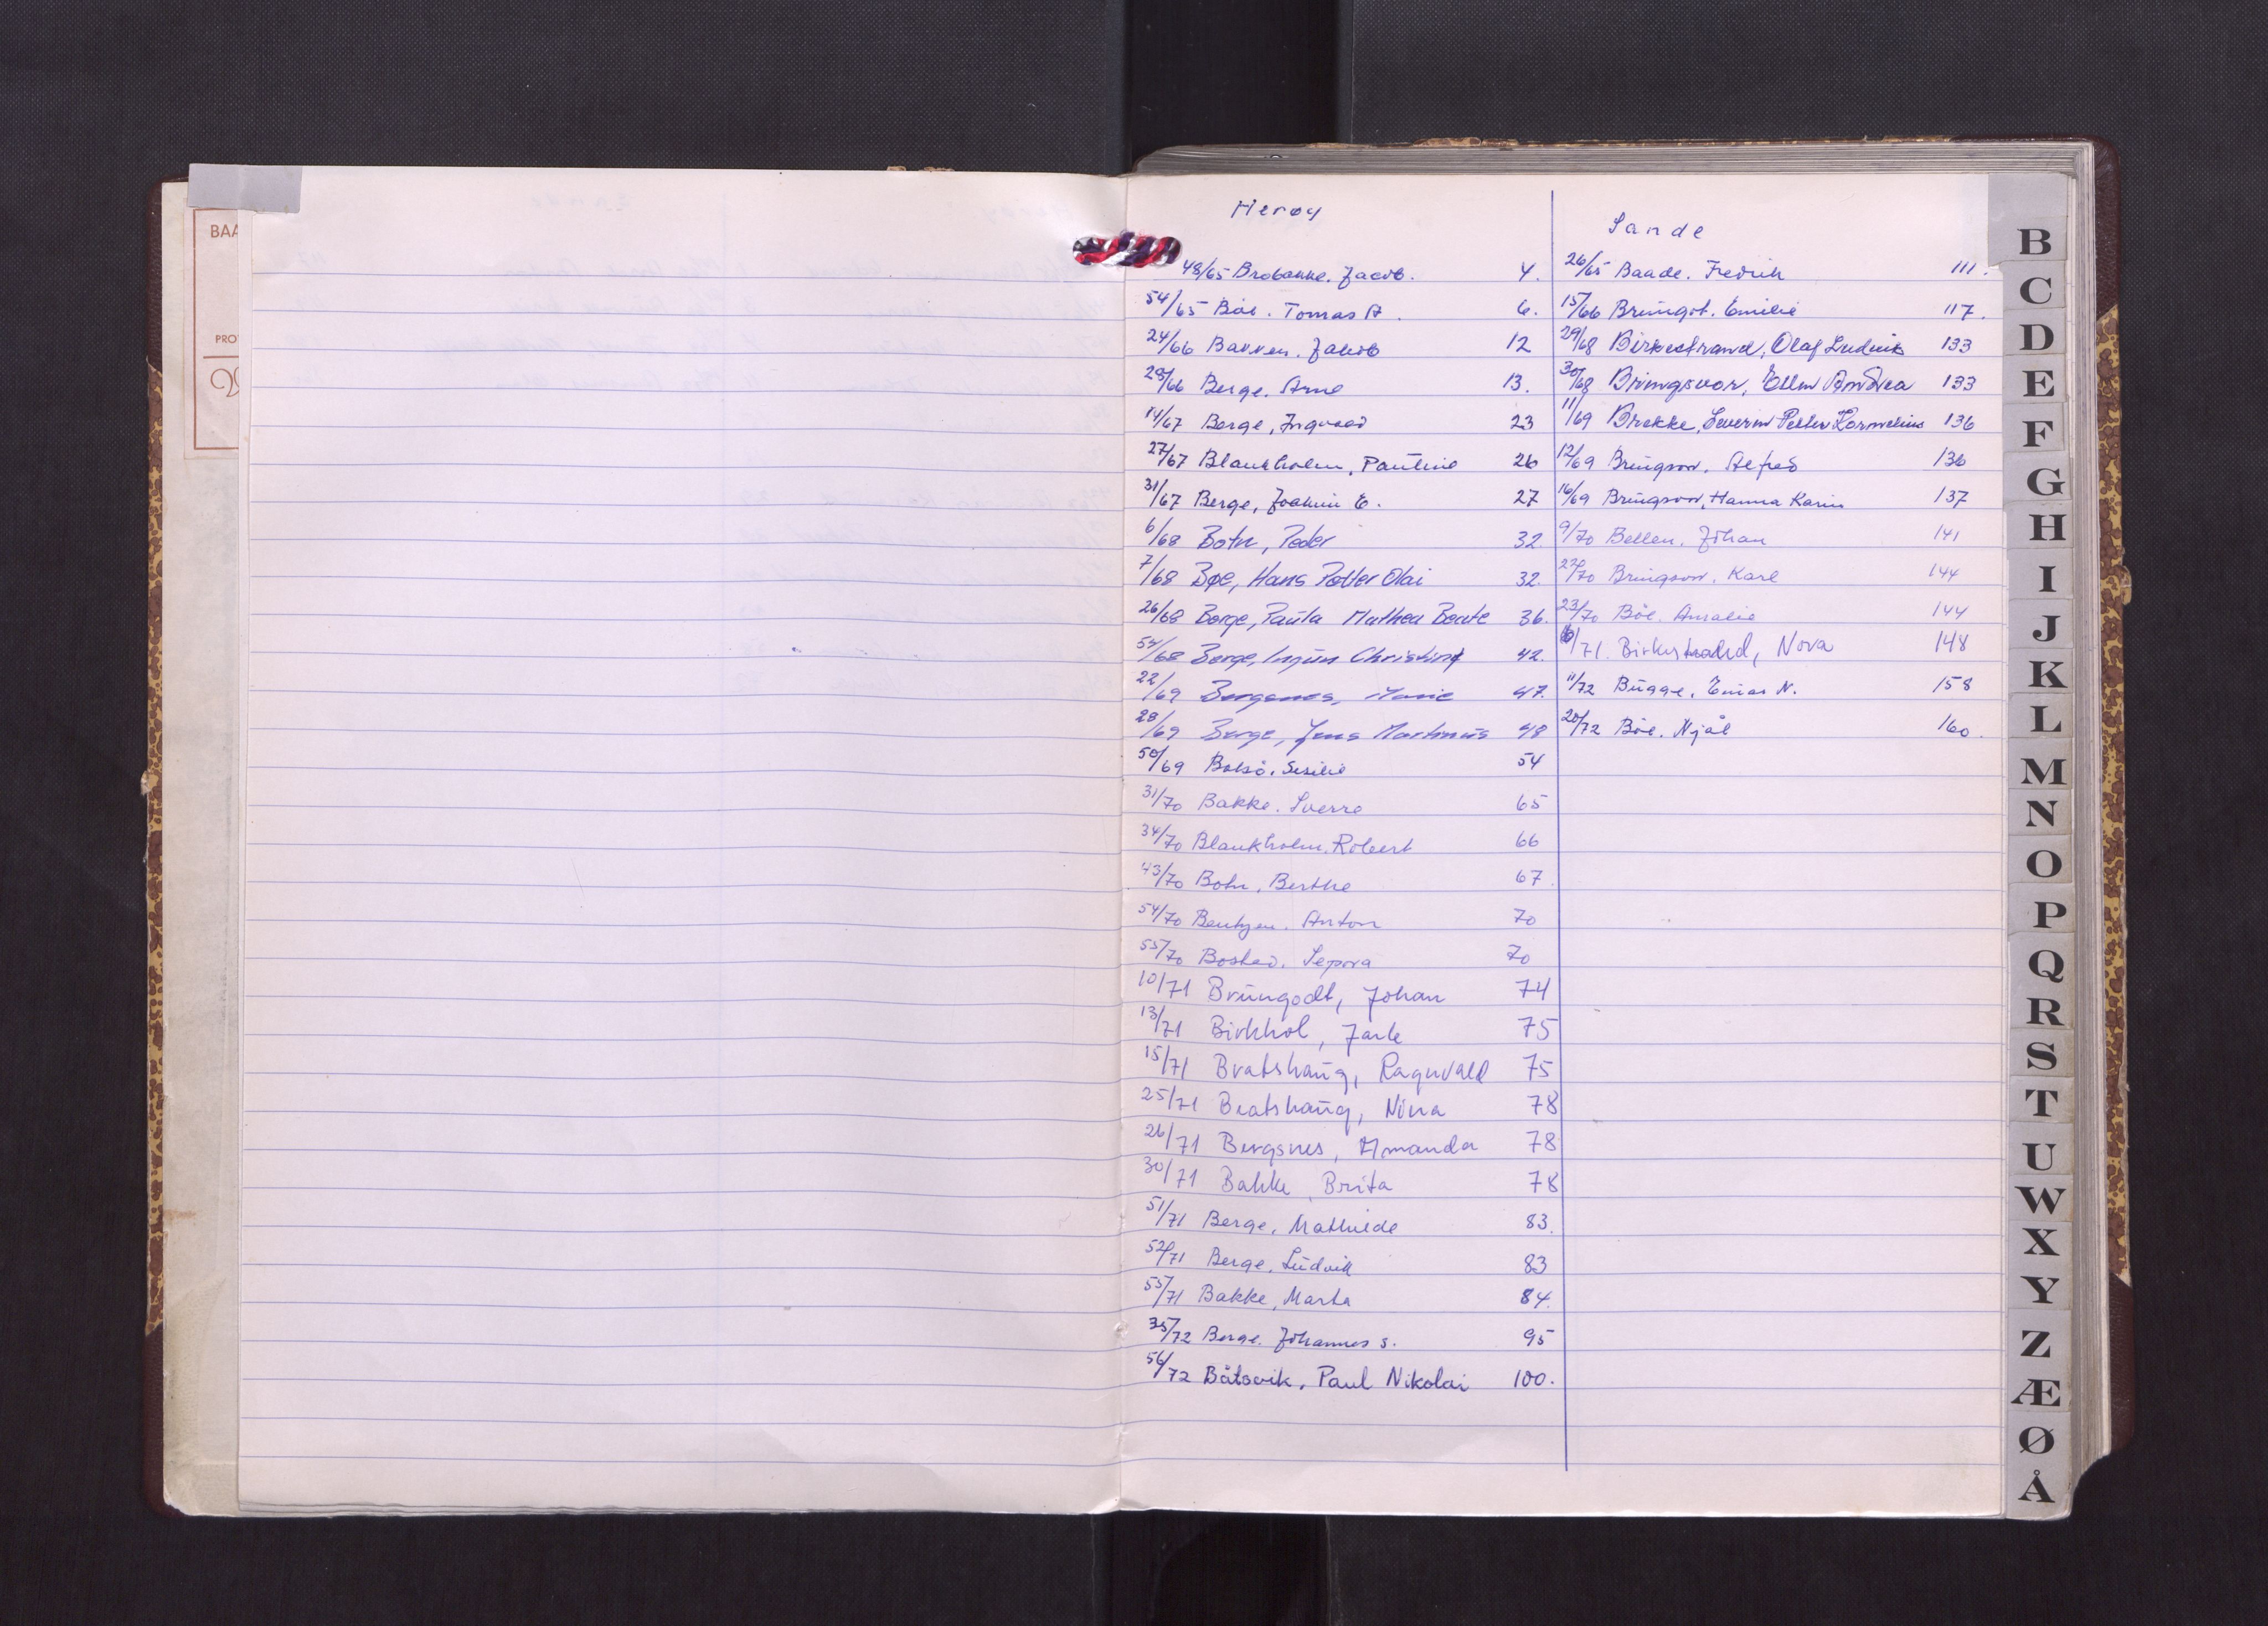 BAA
PRO
Herøy
48/65 Brobakke. Jacob. 4.
54/65 Böe. Tomas A. 6.
24/66 Bakken. Jakob 12
28/66 Berge. Arne 13.
14/67 Berge, Ingvald 23
27/67 Blankholm, Pauline 26
31/67 Berge, Joakim E. 27
6/68 Botn, Peder 32.
7/68 Bøe, Hans Petter Olai 32.
26/68 Berge, Paula Mathea Beate 36.
54/68 Berge, Ingün Christine 42.
22/69 Bergsnes, Marie 47.
28/69 Berge, Jens Martinus 48
50/69 Bolsö. Sesilie 54
31/70 Bakke. Sverre 65
34/70 Blankholm. Robert 66
43/70 Botn, Berthe 67.
54/70 Bentzen. Anton 70
55/70 Bostad. 70
10/71 Brungodt, Johan 74
13/71 Birkhol, Jarle 75
15/71 Bratshaug, Ragnvald 75
25/71 Bratshaug, Nina 78
26/71 Bergsnes, Amanda 78
30/71 Bakke, Brita 78
51/71 Berge, Mathilde 83.
52/71 Berge, Ludvik 83
55/71 Bakke, Marta 84.
35/72 Berge. Johannes S. 95
56/72 Båtsvik, Paul Nikolai 100.
Sande
26/65 Baade. Fredrik 111.
15/66 Brungot. Emilie 117.
29/68 Birkestrand, Olaf Ludvik 133
30/68 Bringsvor, Ellen Andrea 133
11/69 Brekke, Severin Petter Kornelius 136
12/69 Bringsvor. Alfred 136
16/69 Bringsvor, Hanna Karin 137
9/70 Bellen. Johan 141
22/70 Bringsvor. Karl 144
23/70 Böe. Amalie 144
/71. Birkestrand, Nova 148
11/72 Bugge, Einar N. 158
20/72 Böe. Njål 160.
B
C
D
E
F
G
H
I
J
K
L
M
N
O
P
Q
R
S
T
U
W
X
Y
Z
Æ
Ø
Å